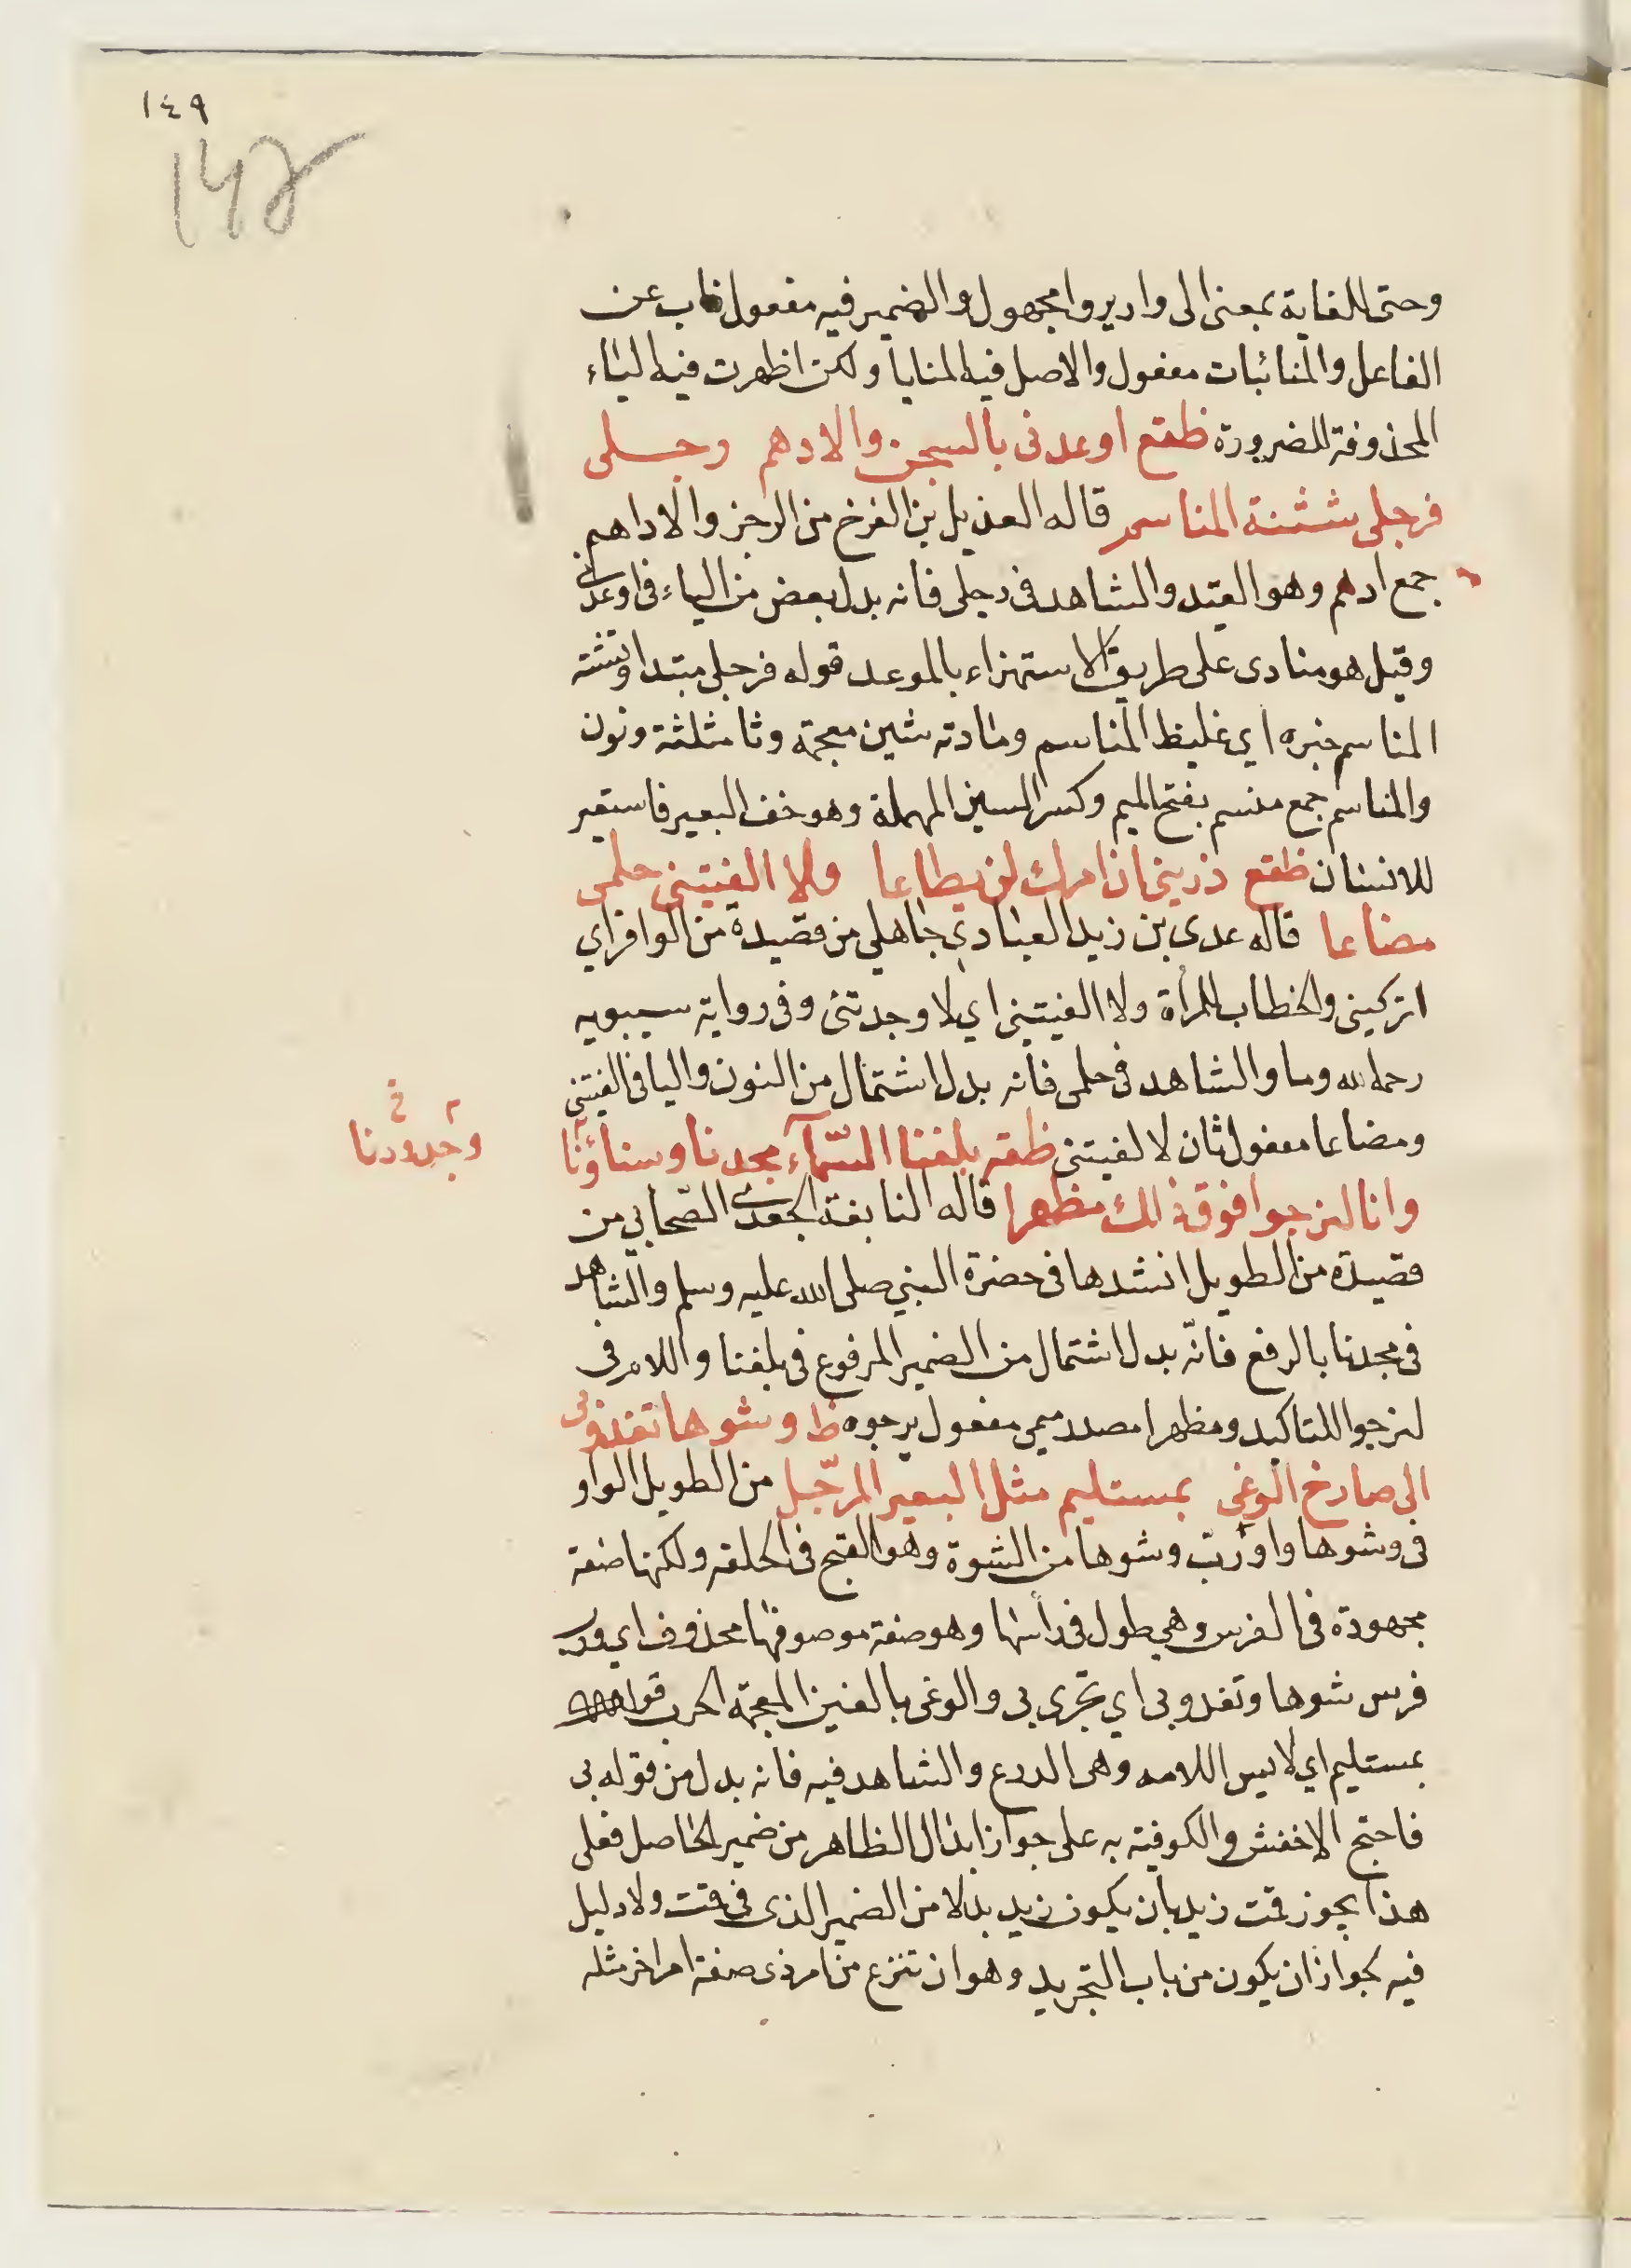 ١٤٩
وحتى للغاية بمعنى الى واديروا مجهول والضمير فيه مفعول ناب عن
الفاعل والمنائبات مفعول والاصل فيه المنايا ولكن اظهرت فيه الياء
المحذوفة للضرورة ظقع اوعدنى بالسجن والادهم رجلى
فرجلى شثنة المناسم قاله العذيل بن الفرخ من الرجز والاداهم
جمع ادهم وهو القيد والشاهد فى رجلى فانه بدل بعض من الياء فى اوعدنى
وقيل هو منادى على طريق الاستهزاء بالموعد قوله فرجلى مبتدا وشثنة
المناسم خبره اي غليظ المناسم ومادته شين معجمة وثا مثلثة ونون
والمناسم جمع منسم بفتح الميم وكسر السين المهملة وهو خف البعير فاستعير
للانسان ظقع ذرينى ان امرك لن يطاعا ولا الفيتنى حلمى
مضاعا قاله عدى بن زيد العبادي جاهلي من قصيدة من الوافر اي
اتركينى والخطاب للمرأة ولا الفيتنى اي لا وجدتنى وفى رواية سيبويه
رحمه الله وما والشاهد فى حلمى فانه بدل اشتمال من النون واليا فى الفيتنى
ومضاعا مفعول ثان لالفيتنى ظقه بلغنا السّمآء مجدنا وسناؤنا
وجدودنا
وانا لنرجوا فوق ذلك مظهرا قاله النابغة الجعدى الصّحابي من
قصيدة من الطويل انشدها فى حضرة النبي صلى الله عليه وسلم والشاهد
فى مجدنا بالرفع فانّه بدل اشتمال من الضمير المرفوع فى بلغنا واللام فى
لنرجوا للتاكيد ومظهرا مصدر ميمى مفعول يرجوه ظ وشوها تغدو بى
الى صارخ الوغى بمستليم مثل البعير المرجّل من الطويل الواو
فى وشوها واو ربّ وشوها من الشوة وهو القبح فى الخلقه ولكنها صفة
محمودة فى الفرس وهي طول فى راسها وهو صفة موصوفها محذوف اي ورب
فرس شوها وتغدو بى اي تجرى بى والوغى بالغين المعجمة الحرب قوله
بمستليم اي لابس اللامه وهى الدرع والشاهد فيه فانه بدل من قوله بى
فاحتج الاخفش والكوفية به على جواز ابدال الظاهر من ضمير الحاصل فعلى
هذا يجوز قمت زيد بان يكون زيد بدلا من الضمير الذى فى قمت ولا دليل
فيه لجواز ان يكون من باب التجريد وهو ان تنزع من امر ذى صفة امر اخر مثله